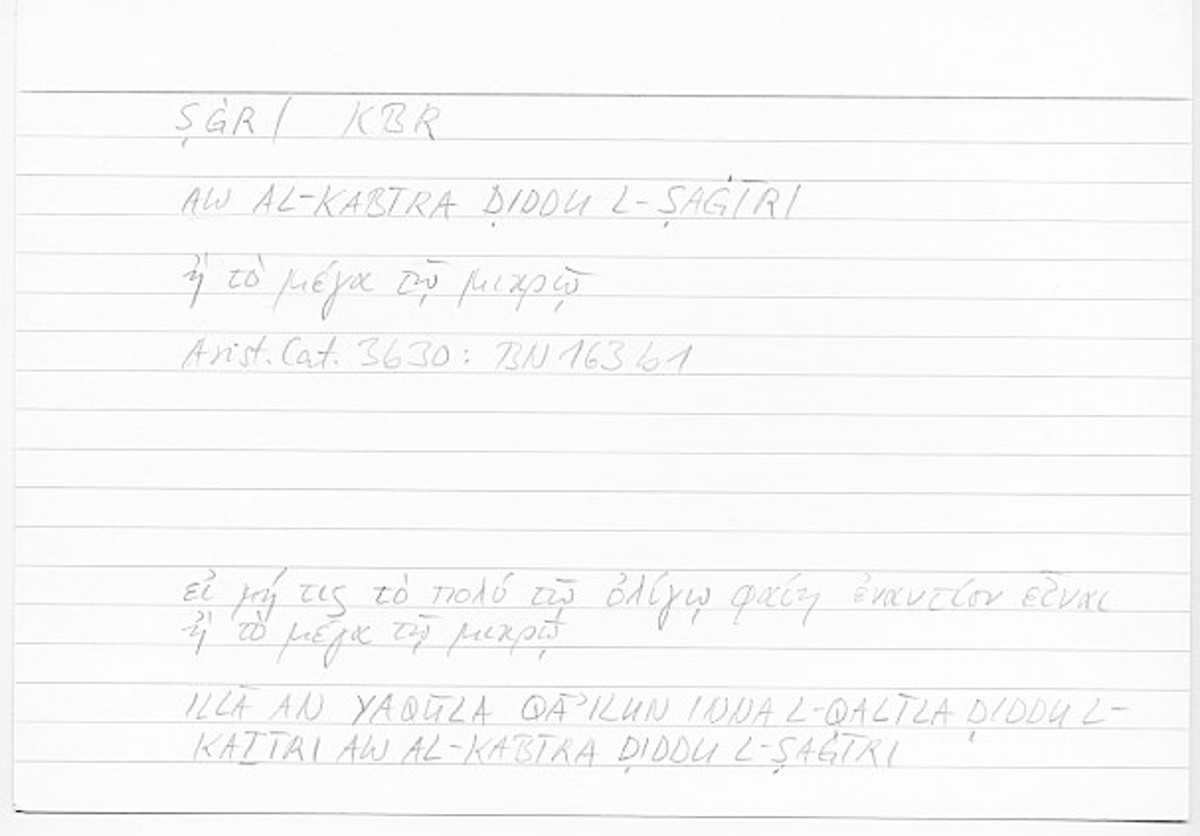 ṢĠR / KBR
AW AL-KABĪRA ḌIDDU L-ṢAĠĪRI
ἢ τὸ μέγα τῷ μικρῷ
Arist. Cat. 3630: BN 163b1
εἰ μή τις τὸ πολύ τῷ ὀλίγῳ φαίη ἐναντίον εἶναι
ἢ τὸ μέγα τῷ μικρῷ
ILLĀ AN YAQŪLA QĀʾILUN INNA L-QALĪLA ḌIDDU L-
KAṮĪRI AW AL-KABĪRA ḌIDDU L-ṢAĠĪRI